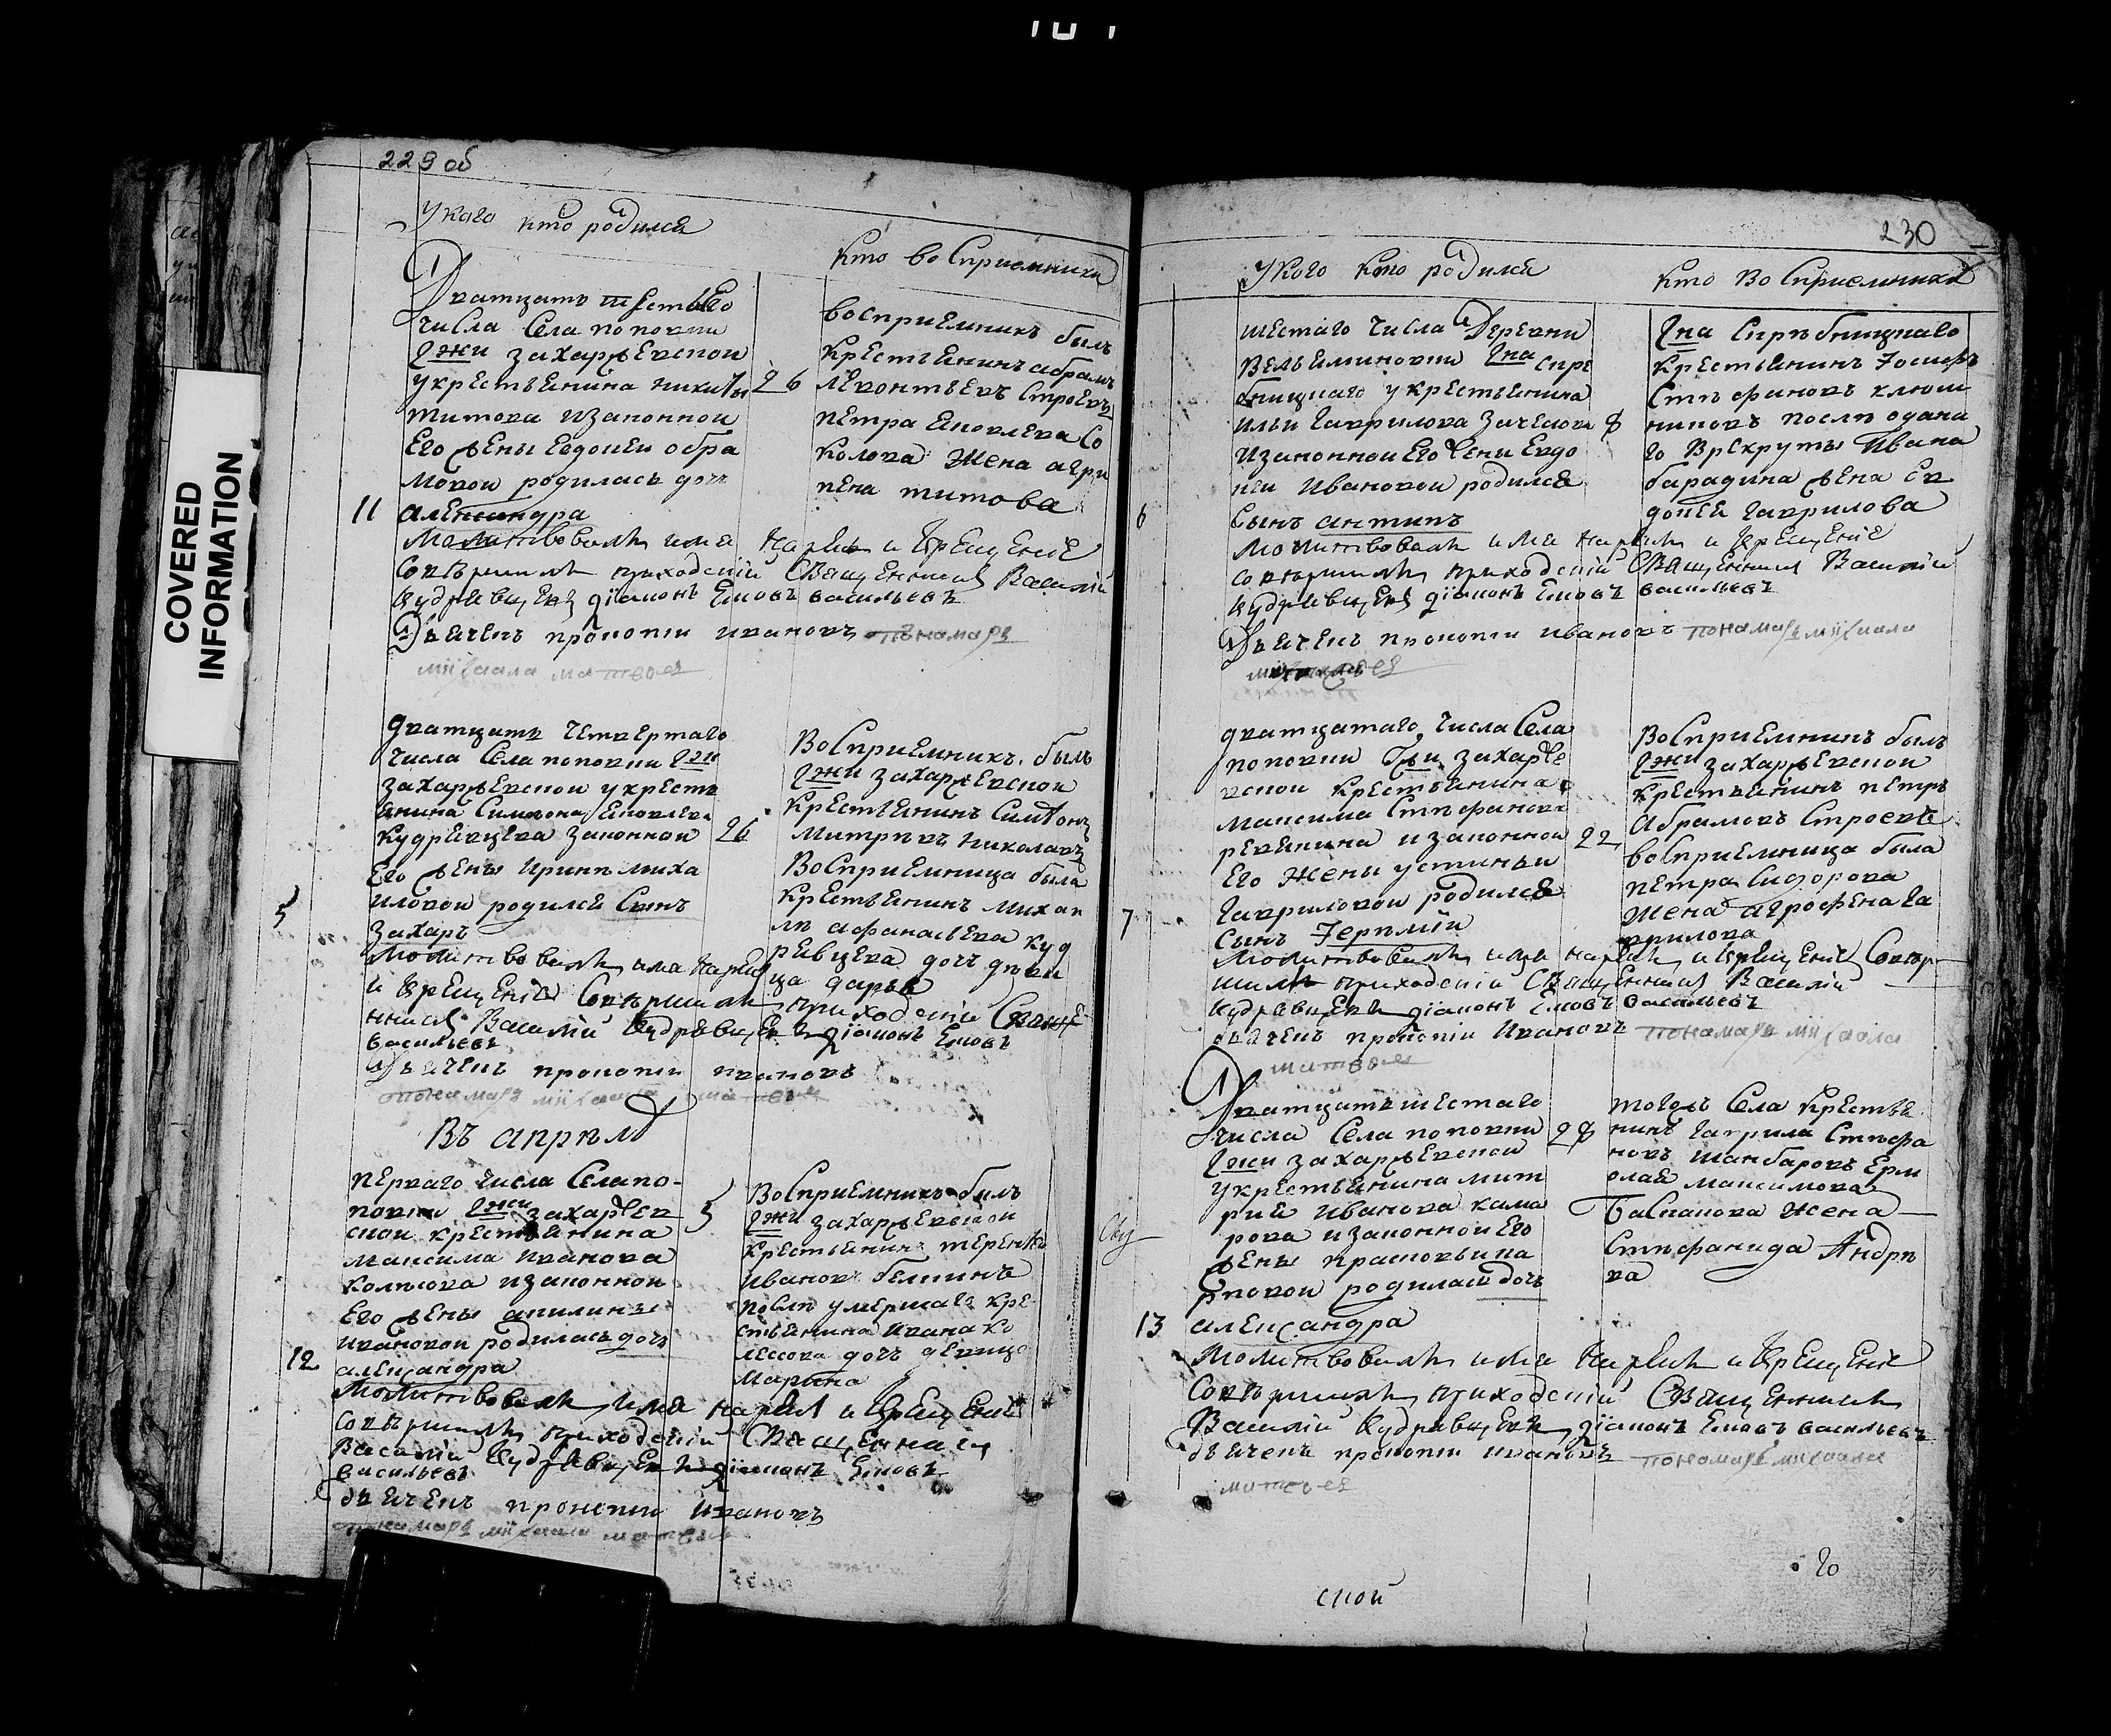 COVERED
INFORMATION
229 об
У кого кто родился
Кто восприемники
Дватцать шестаго
числа Села поповки
Гжи захаржевской
у крестьянина никиты
титова изаконной
Его жены Евдокеи абра
мовой родилась дочь
11 александра
26
восприемникъ былъ
крестьянинъ абрамъ
леонтьевъ Строевъ
петра яковлева Со
колова жена агри
пена титова
Молитвовалъ имя нарекъ и крещение
Совершилъ приходский Священникъ Василий
Кудрявцевъ диаконъ Яковъ васильевъ
Дьячекъ прокопий ивановъ пономарь
михаила матвея
дватцать четвертаго
числа Села поповки Гжи
захаржевской у крестья
янина Симиона яковлева
кудрявцева законной
Его жены ирины миха
иловой родился Сынъ
5 захаръ
26
Восприемникъ былъ
Гжи захаржевской
крестьянинъ Симионъ
митревъ николаевъ
Восприемница была
крестьянинъ михаи
ла афанасьева куд
рявцева дочь деви
ца дарья
Молитвовалъ имя нарекъ
и крещение Совершилъ приходский Свяще
нникъ Василий Кудрявцевъ диаконъ Яковъ
васильевъ
Дьячекъ прокопий ивановъ
пономарь михаила матвея
Въ апреле
перваго числа Села по-
повки Гжи захаржев
ской крестьянина
максима иванова
колесова изаконной
Его жены акилины
ивановой родилась дочь
12 александра
5
Восприемникъ былъ
Гжи захаржевской
крестьянинъ терентей
ивановъ
после умершаго кре
стьянина ивана ко
лессова дочь девица
марина
Молитвовалъ имя нарекъ и крещение
Совершилъ приходский Священникъ
Василий Кудрявцевъ диаконъ Яковъ
васильевъ
дьячекъ прокопий ивановъ
пономарь михаила матвея
230
У кого кто родился
Кто Восприемники
шестаго числа Деревни
Вельяминовки Гна Спре
бницкаго у крестьянина
ильи гаврилова
изаконной Его жени Евдо
кеи ивановой родился
6 Сынъ антипъ
8
Гна Спребницкаго
крестьянинъ Иосифъ
Стефановъ клюш
никовъ после одана
го Врекруты ивана
барадина жена Ев
докея гаврилова
Молитвовалъ имя нарекъ и крещение
Совершилъ приходский Священникъ Василий
Кудрявцевъ диаконъ Яковъ васильевъ
Дьячекъ прокопий ивановъ пономарь михаила
дватцатаго числа Села
поповки Гжи захарже
вской крестьянина
максима Стефанова
ревякина изаконной
Его жены устиньи
гавриловой родился
7 Сынъ Иеремий
22
Восприемникъ былъ
Гжи захаржевской
крестьянинъ петръ
абрамовъ Строевъ
восприемница была
петра Сидорова
жена агрофена га
врилова
Молитвовалъ имя нарекъ и крещение Совер-
шилъ приходский Священникъ Василий
Кудрявцевъ диаконъ Яковъ васильевъ
дьячекъ прокопий ивановъ пономарь михаила
матвея
Дватцать шестаго
числа Села поповки
Гжи захаржевской
у крестьянина мит
рия иванова кама
рова изаконной Его
жены прасковьи ка
рповой родилась дочь
13 александра
28
тогожъ Села крестья
нинъ гаврила Стефа
новъ шанбаровъ Ерм
олая максимова
Баскакова жена
Стефанида Андре
ва
Молитвовалъ имя нарекъ и крещение
Совершилъ приходский Священникъ
Василий Кудрявцевъ диаконъ Яковъ васильевъ
дьячекъ прокопий ивановъ пономарь михаила
матвея
ской
го